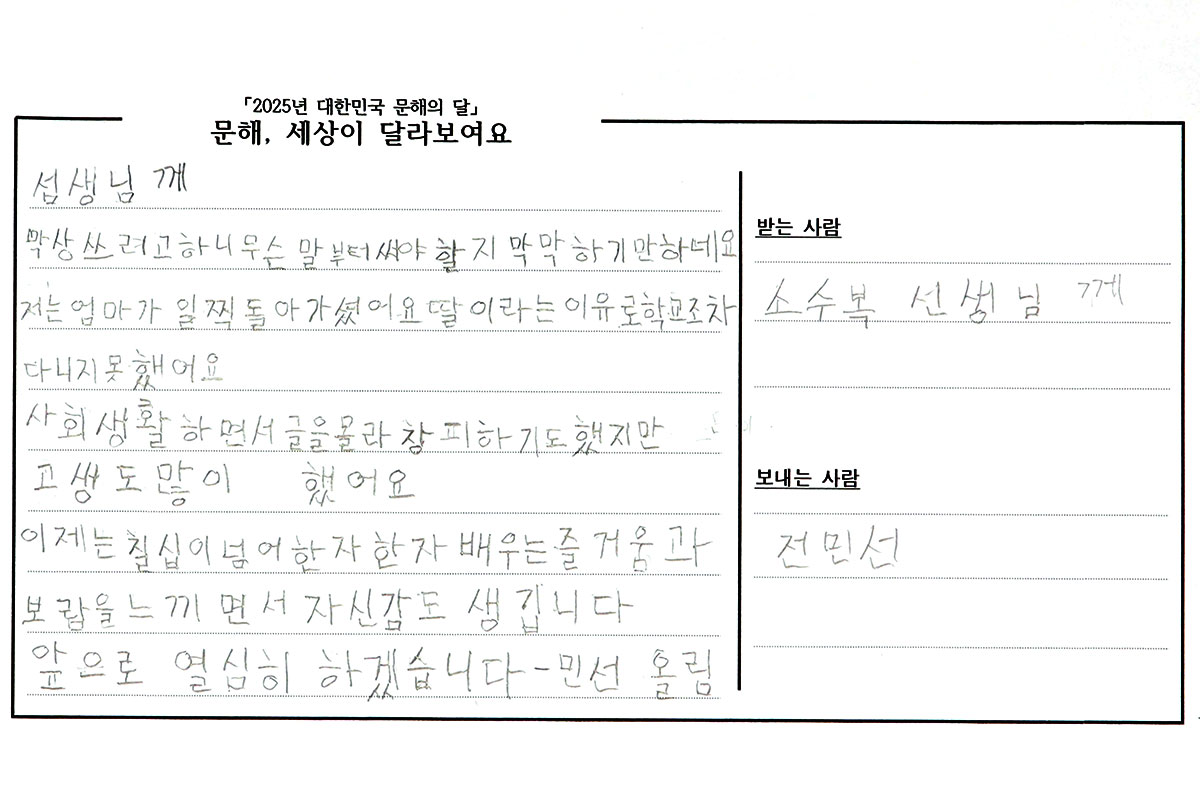 「2025년 대한민국 문해의 달」
문해, 세상이 달라보여요
섭생님 께
막상 쓰려고하니 무슨 말부터써야 할지 막막하기만하네요
저는 엄마가 일찍돌아가셨어요 딸이라는이유로학교조차
다니지못했어요
사회생활하면서글을몰라 창피하기도했지만
고생도많이 했어요
이제는 칠십이넘어한자한자 배우는즐거움과
보람을느끼면서 자신감도 생깁니다
앞으로 열심히 하겠습니다-민선 올림
받는 사람
소수복 선생님 께
보내는 사람
전민선